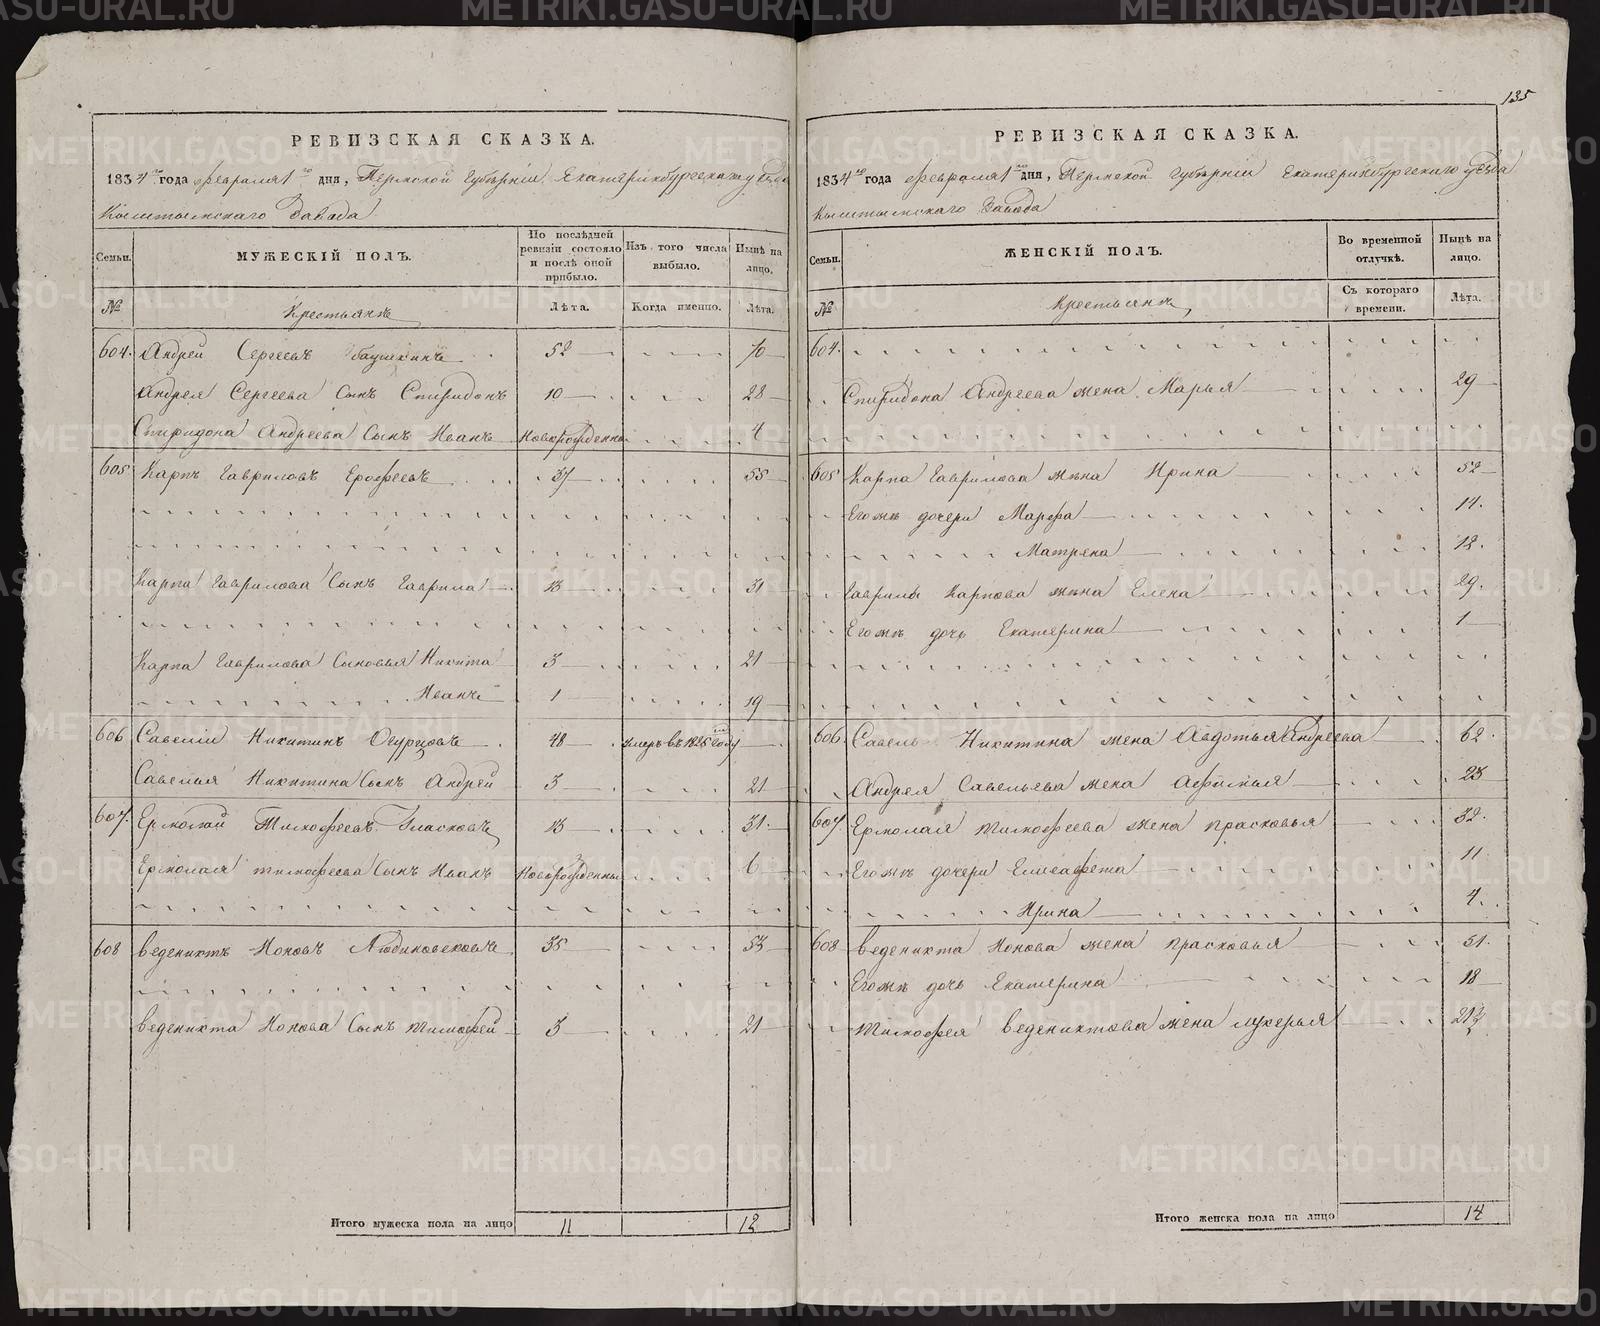 135
РЕВИЗСКАЯ СКАЗКА.
1834го года февраля 1го дня, Пермской Губернiи Екатеринбургскаго уезда
Кыштымскаго Завода
Семьи. МУЖЕСКIЙ ПОЛЪ. По послѣдней ревизiи состояло и послѣ оной прибыло. Изъ того числа выбыло. Нынѣ на лицо.
№ Крестьянъ Лѣта. Когда именно. Лѣта.
604. Андрей Сергеевъ 52 70
Андрея Сергеева Сынъ Спиридонъ 10 28
Спиридона Андреева Сынъ Иванъ новорожденны 4
605 Карпъ Гавриловъ Ерофеевъ 37 55
Карпа Гаврилова Сынъ Гаврила 13 31
Карпа Гаврилова Сыновья Никита 3 21
Иванъ 1 19
606 Савелiй Никитинъ Огурцовъ 48 умеръ въ 1825 году
Савелья Никитина Сынъ Андрей 3 21
607. Ермолай Тимофеевъ Гласковъ 13 31.
Ермолая тимофеева Сынъ Иванъ Новорожденны 6
608 веденихтъ Ионовъ 35 53
веденихта Ионова Сынъ тимофей 3 21
Итого мужеска пола на лицо 11 12
РЕВИЗСКАЯ СКАЗКА.
1834го года февраля 1го дня, Пермской губернiи Екатеринбургскаго уезда
Кыштымскаго Завода
Семьи. ЖЕНСКIЙ ПОЛЪ. Во временной отлучкѣ. Нынѣ на лицо.
№ Крестьянъ Съ котораго времени. Лѣта.
604.
Спиридона Андреева жена Марья 29
605 Карпа Гаврилова жена Ирина 52
Егожъ дочери Марфа 14.
Матрена 12.
Гаврилы Карпова жена Елена 29.
Егожъ дочь Екатерина 1
606. Савель Никитина жена Авдотья Андреева 62.
Андрея Савельева жена Афимья 23
607. Ермолая тимофеева жена прасковья 32.
Егожъ дочери Елисафета 11
Ирина 4.
608 веденихта Ионова жена прасковья 51.
Егожъ дочь Екатерина 18
тимофея веденихтова жена лукерья
Итого женска пола на лицо 14
METRIKI.GASO-URAL.RU